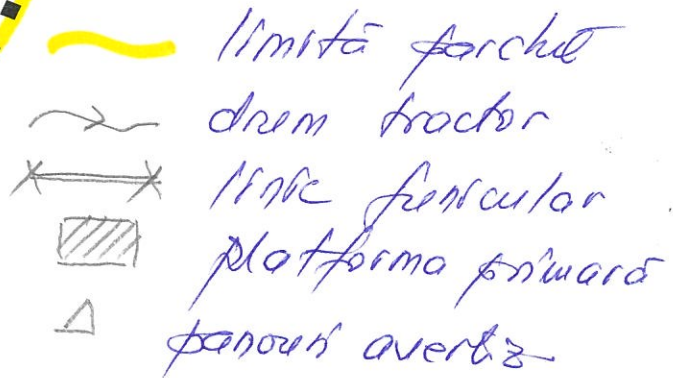 limită parchet
drum tractor
linie funicular
platforma primară
panouri avertiz